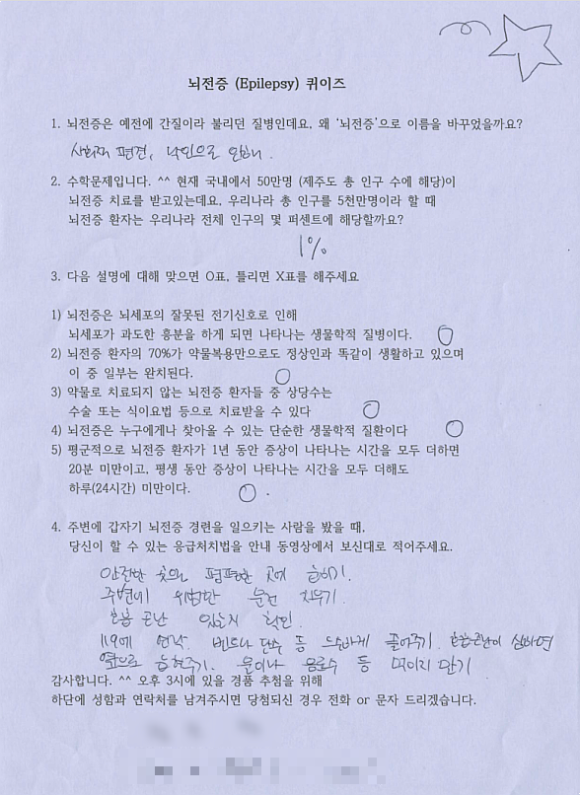 뇌전증 (Epilepsy) 퀴이즈
1. 뇌전증은 예전에 간질이라 불리던 질병인데요, 왜 '뇌전증'으로 이름을 바꾸었을까요?
사회적 편견, 낙인으로 인해.
2. 수학문제입니다. ^^ 현재 국내에서 50만명 (제주도 총 인구 수에 해당)이
뇌전증 치료를 받고있는데요, 우리나라 총 인구를 5천만명이라 할 때
뇌전증 환자는 우리나라 전체 인구의 몇 퍼센트에 해당할까요?
1%
3. 다음 설명에 대해 맞으면 O표, 틀리면 X표를 해주세요
1) 뇌전증은 뇌세포의 잘못된 전기신호로 인해
뇌세포가 과도한 흥분을 하게 되면 나타나는 생물학적 질병이다. O
2) 뇌전증 환자의 70%가 약물복용만으로도 정상인과 똑같이 생활하고 있으며
이 중 일부는 완치된다. O
3) 약물로 치료되지 않는 뇌전증 환자들 중 상당수는
수술 또는 식이요법 등으로 치료받을 수 있다 O
4) 뇌전증은 누구에게나 찾아올 수 있는 단순한 생물학적 질환이다 O
5) 평균적으로 뇌전증 환자가 1년 동안 증상이 나타나는 시간을 모두 더하면
20분 미만이고, 평생 동안 증상이 나타나는 시간을 모두 더해도
하루(24시간) 미만이다. O.
4. 주변에 갑자기 뇌전증 경련을 일으키는 사람을 봤을 때,
당신이 할 수 있는 응급처치법을 안내 동영상에서 보신대로 적어주세요.
안전한 곳의 평평한 곳에 눕히기.
주변에 위험한 물건 치우기
호흡 곤란 있는지 확인.
119에 연락. 벨트나 단추 등 느슨하게 풀어주기. 호흡곤란이 심하면
옆으로 눕혀주기. 물이나 음료수 등 먹이지 않기
감사합니다. ^^ 오후 3시에 있을 경품 추첨을 위해
하단에 성함과 연락처를 남겨주시면 당첨되신 경우 전화 or 문자 드리겠습니다.